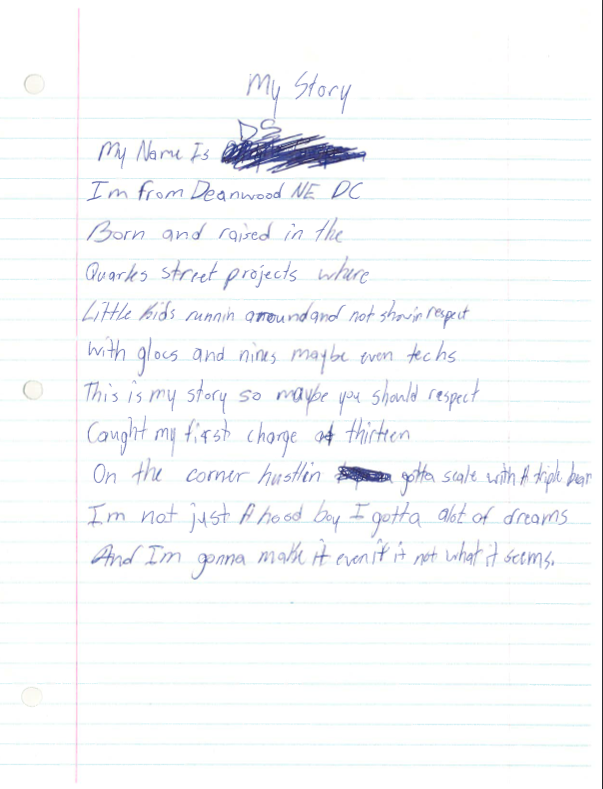 My Story
DS
My Name Is
I'm from Deanwood NE DC
Born and raised in the
Quarles street projects where
Little kids runnin around and not showin respect
With glocs and nines maybe even techs
This is my story so maybe you should respect
Caught my first charge at thirteen
On the corner hustlin gotta scale with A triple beam
I'm not just A hood boy I gotta alot of dreams
And I'm gonna make it even if it not what it seems.